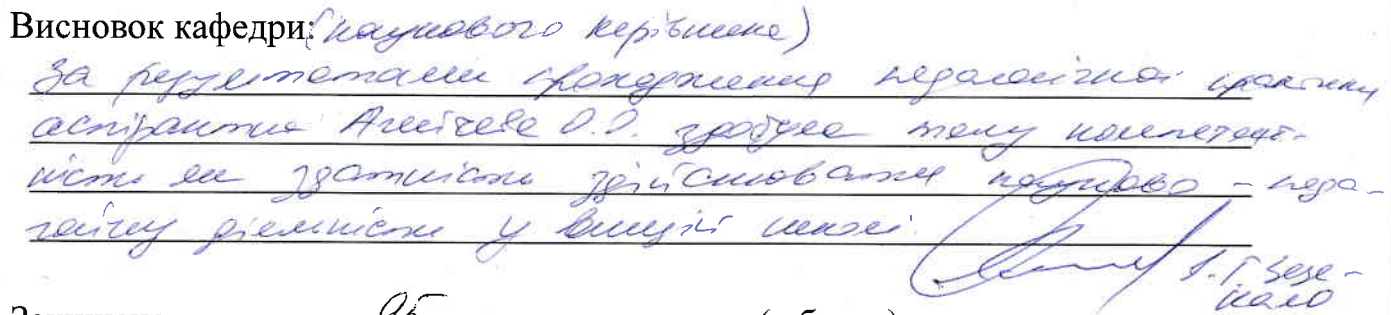 Висновок кафедри: (наукового керівника)
За результатами проходження педагогічної практики
аспірантка О.О. здобула таку компетент-
ність як здатність здійснювати науково-педа-
гогічну діяльність у вищій школі.